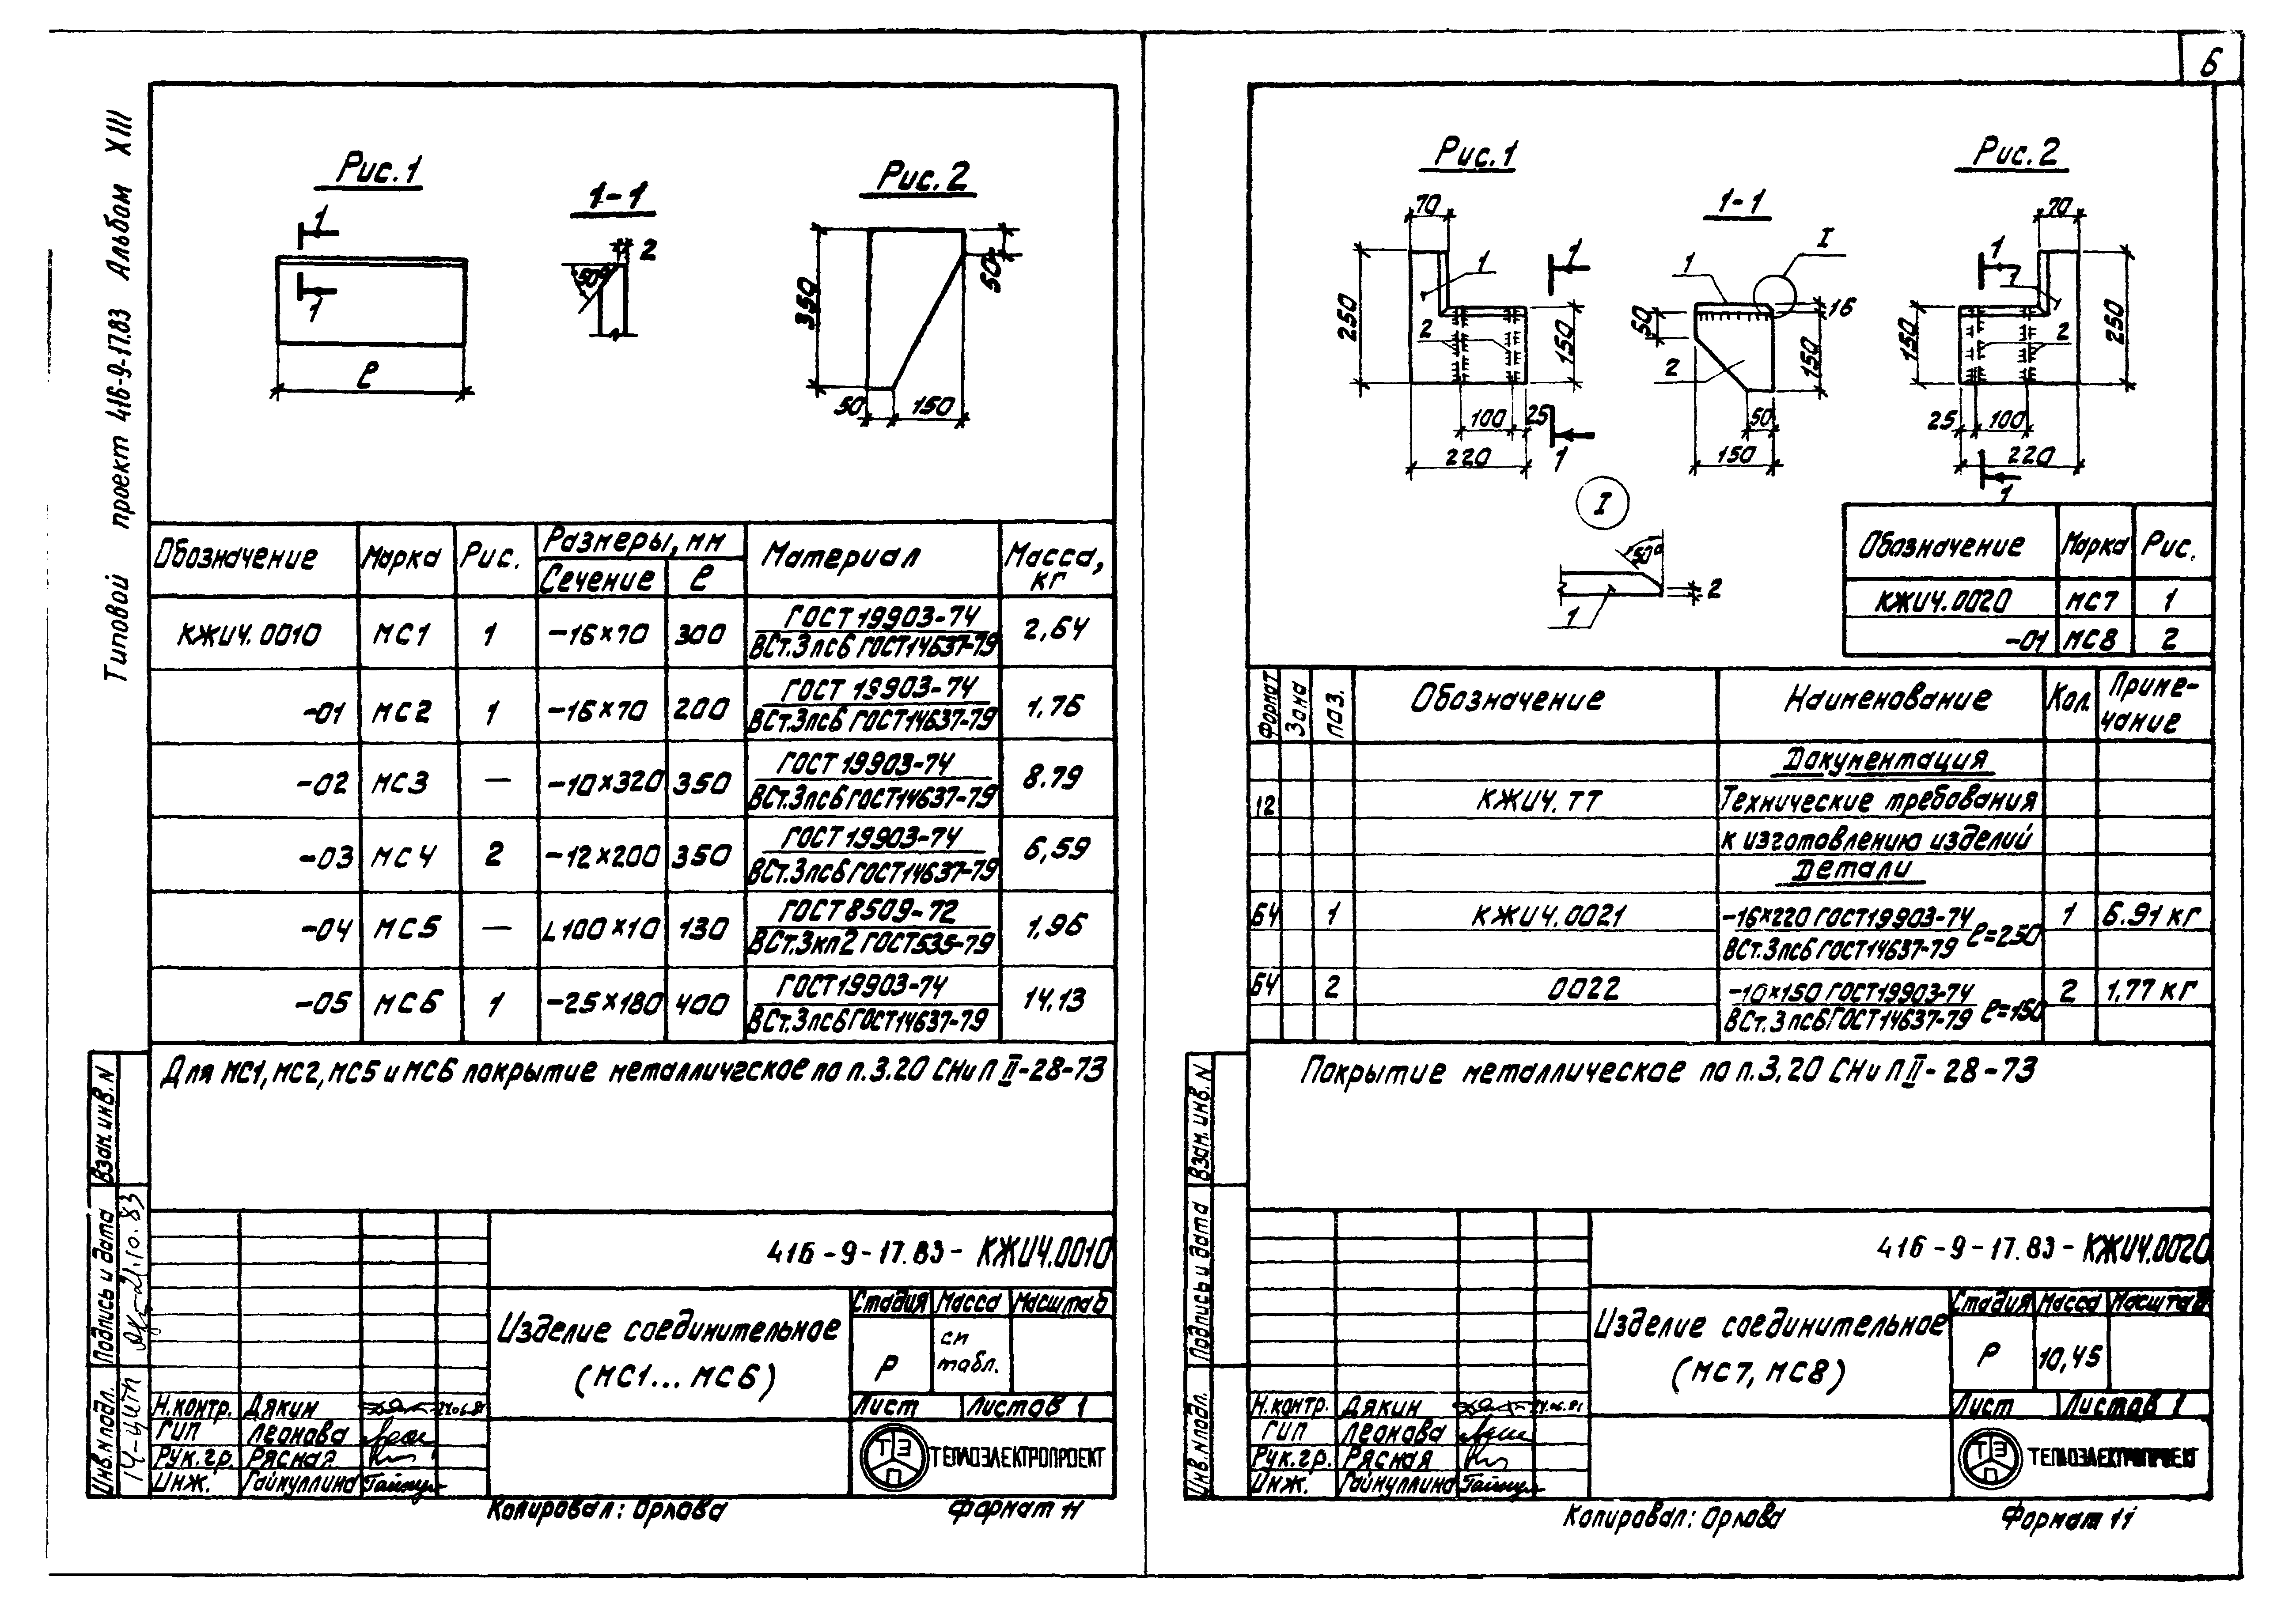 6
Типовой проект 416-9-17.83 Альбом XIII
Рис.1
1-1
Рис.2
1
1
ℓ
2
50°
350
50
50
150
Обозначение Марка Рис. Размеры, мм Материал Масса, кг
Сечение ℓ
КЖИ4.0010 МС1 1 -16×70 300 ГОСТ 19903-74 2,64
ВСт.3пс6 ГОСТ14637-79
-01 МС2 1 -16×70 200 ГОСТ 19903-74 1,76
ВСт.3пс6 ГОСТ14637-79
-02 МС3 — -10×320 350 ГОСТ 19903-74 8.79
ВСт.3пс6 ГОСТ14637-79
-03 МС4 2 -12×200 350 ГОСТ 19903-74 6,59
ВСт.3пс6 ГОСТ14637-79
-04 МС5 — L100×10 130 ГОСТ 8509-72 1,96
ВСт.3кп2 ГОСТ535-79
-05 МС6 1 -25×180 400 ГОСТ19903-74 14,13
ВСт.3пс6 ГОСТ14637-79
Для МС1, МС2, МС5 и МС6 покрытие металлическое по п.3.20 СНиП II-28-73
Взам. инв. N
Подпись и дата
21.10.83
Инв. N подл.
416-9-17.83-КЖИ4.0010
Изделие соединительное
(МС1...МС6)
Стадия Масса Масштаб
Р
сп
табл.
Лист Листов 1
Н.контр. Дякин 24.06.81
ГИП Леонова
Рук.гр. Рясная
Инж. Гайнуллина
ТЭП
ТЕПЛОЭЛЕКТРОПРОЕКТ
Копировал: Орлова Формат 11
Рис.1
1-1
Рис.2
70
250
1
2
150
100
25
220
1
1
I
1
50
16
150
2
50
150
70
1
1
150
2
250
25
100
220
1
I
50°
2
1
Обозначение Марка Рис.
КЖИ4.0020 МС7 1
-01 МС8 2
Формат Зона Поз. Обозначение Наименование Кол. Приме-
чание
Документация
12 КЖИ4.ТТ Технические требования
к изготовлению изделий
Детали
Б4 1 КЖИ4.0021 -16×220 ГОСТ19903-74 ℓ=250 1 6.91 кг
ВСт.3пс6 ГОСТ14637-79
Б4 2 0022 -10×150 ГОСТ19903-74 ℓ=150 2 1,77 кг
ВСт.3пс6 ГОСТ14637-79
Покрытие металлическое по п.3.20 СНиП II-28-73
Взам. инв. N
Подпись и дата
Инв. N подл.
416-9-17.83-КЖИ4.0020
Изделие соединительное
(МС7, МС8)
Стадия Масса Масштаб
Р 10,45
Лист Листов 1
Н.контр. Дякин 24.06.81
ГИП Леонова
Рук.гр. Рясная
Инж. Гайнуллина
ТЭП
ТЕПЛОЭЛЕКТРОПРОЕКТ
Копировал: Орлова Формат 11